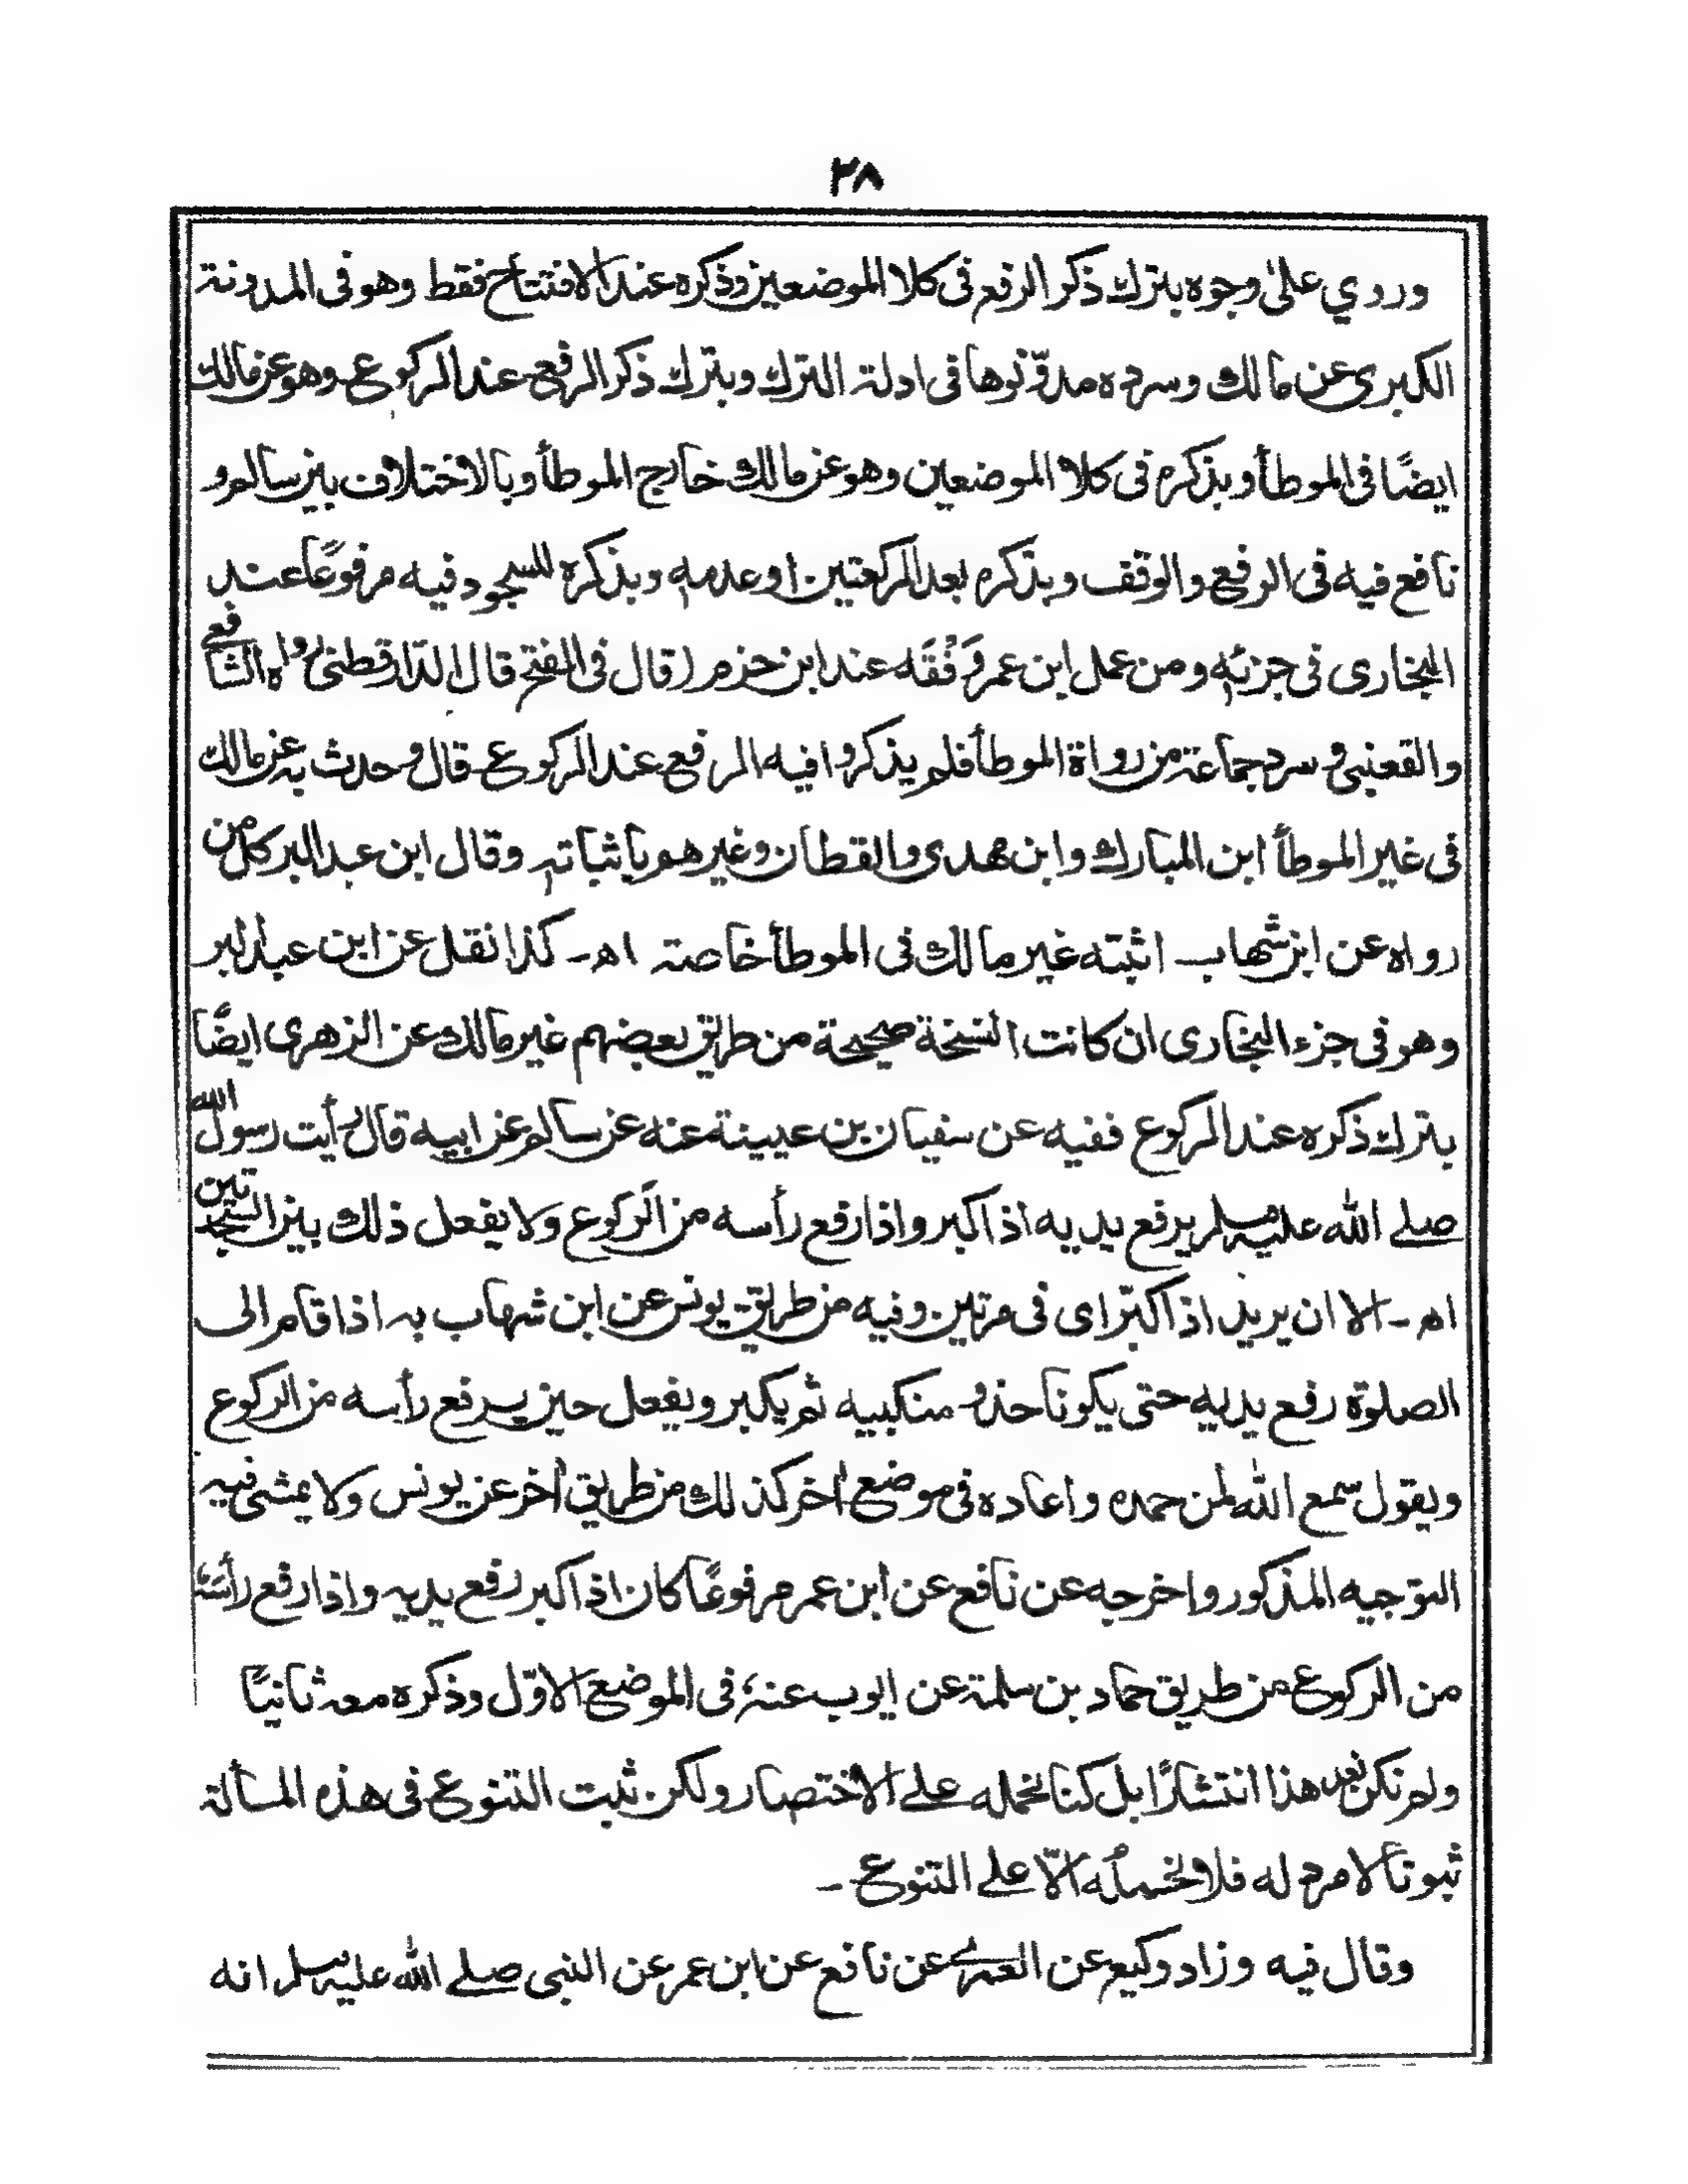 ٢٨
وروي على وجوه بترك ذكر الرفع فى كلا الموضعين وذكره عند الافتتاح فقط وهو فى المدونة
الكبرى عن مالك وسرده مدوّنوها فى ادلة الترك وبترك ذكر الرفع عند الركوع وهو عن مالك
ايضًا فى الموطأ وبذكره فى كلا الموضعين وهو عن مالك خارج الموطأ وبالاختلاف بين سالم و
نافع فيه فى الرفع والوقف وبذكره بعد الركعتين او عدمه وبذكره للسجود فيه مرفوعًا عند
البخارى فى جزئه ومن عمل ابن عمر وَفْقَه عند ابن حزم (قال فى الفتح قال الدّارقطنى رواه الشافعى
والقعنبى و سرد جماعة من رواة الموطأ فلم يذكروا فيه الرفع عند الركوع قال وحدث به عن مالك
فى غير الموطأ ابن المبارك وابن مهدى والقطان وغيرهم باثباته وقال ابن عبد البر كل من
رواه عن ابن شهاب اثبته غير مالك فى الموطأ خاصة اه۔ كذا نقل عن ابن عبد البر
وهو فى جزء البخارى ان كانت النسخة صحيحة من طريق بعضهم غير مالك عن الزهرى ايضًا
بترك ذكره عند الركوع ففيه عن سفيان بن عيينة عنه عن سالم عن ابيه قال رأيت رسول الله
صلى الله عليه وسلم يرفع يديه اذا كبر واذا رفع رأسه من الركوع ولا يفعل ذلك بين السجدتين
اه۔ الا ان يريد اذا كبّر اى فى مرتين وفيه من طريق يونس عن ابن شهاب به اذا قام الى
الصلوة رفع يديه حتى يكونا حذو منكبيه ثم يكبر ويفعل حين يرفع رأسه من الركوع
ويقول سمع الله لمن حمده واعاده فى موضع اخر كذلك من طريق اخر عن يونس ولا يمشى فيه
التوجيه المذكور واخرجه عن نافع عن ابن عمر مرفوعًا كان اذا كبر رفع يديه واذا رفع رأسه
من الركوع من طريق حماد بن سلمة عن ايوب عنه فى الموضع الاوّل وذكره معه ثانيًا
ولم نكن نعد هذا انتشارًا بل كنا نحمله على الاختصار ولكن ثبت التنوع فى هذه المسألة
ثبوتًا لا مرد له فلا نحمله الّا على التنوع ۔
وقال فيه وزاد وكيع عن العمرى عن نافع عن ابن عمر عن النبى صلى الله عليه وسلم انه